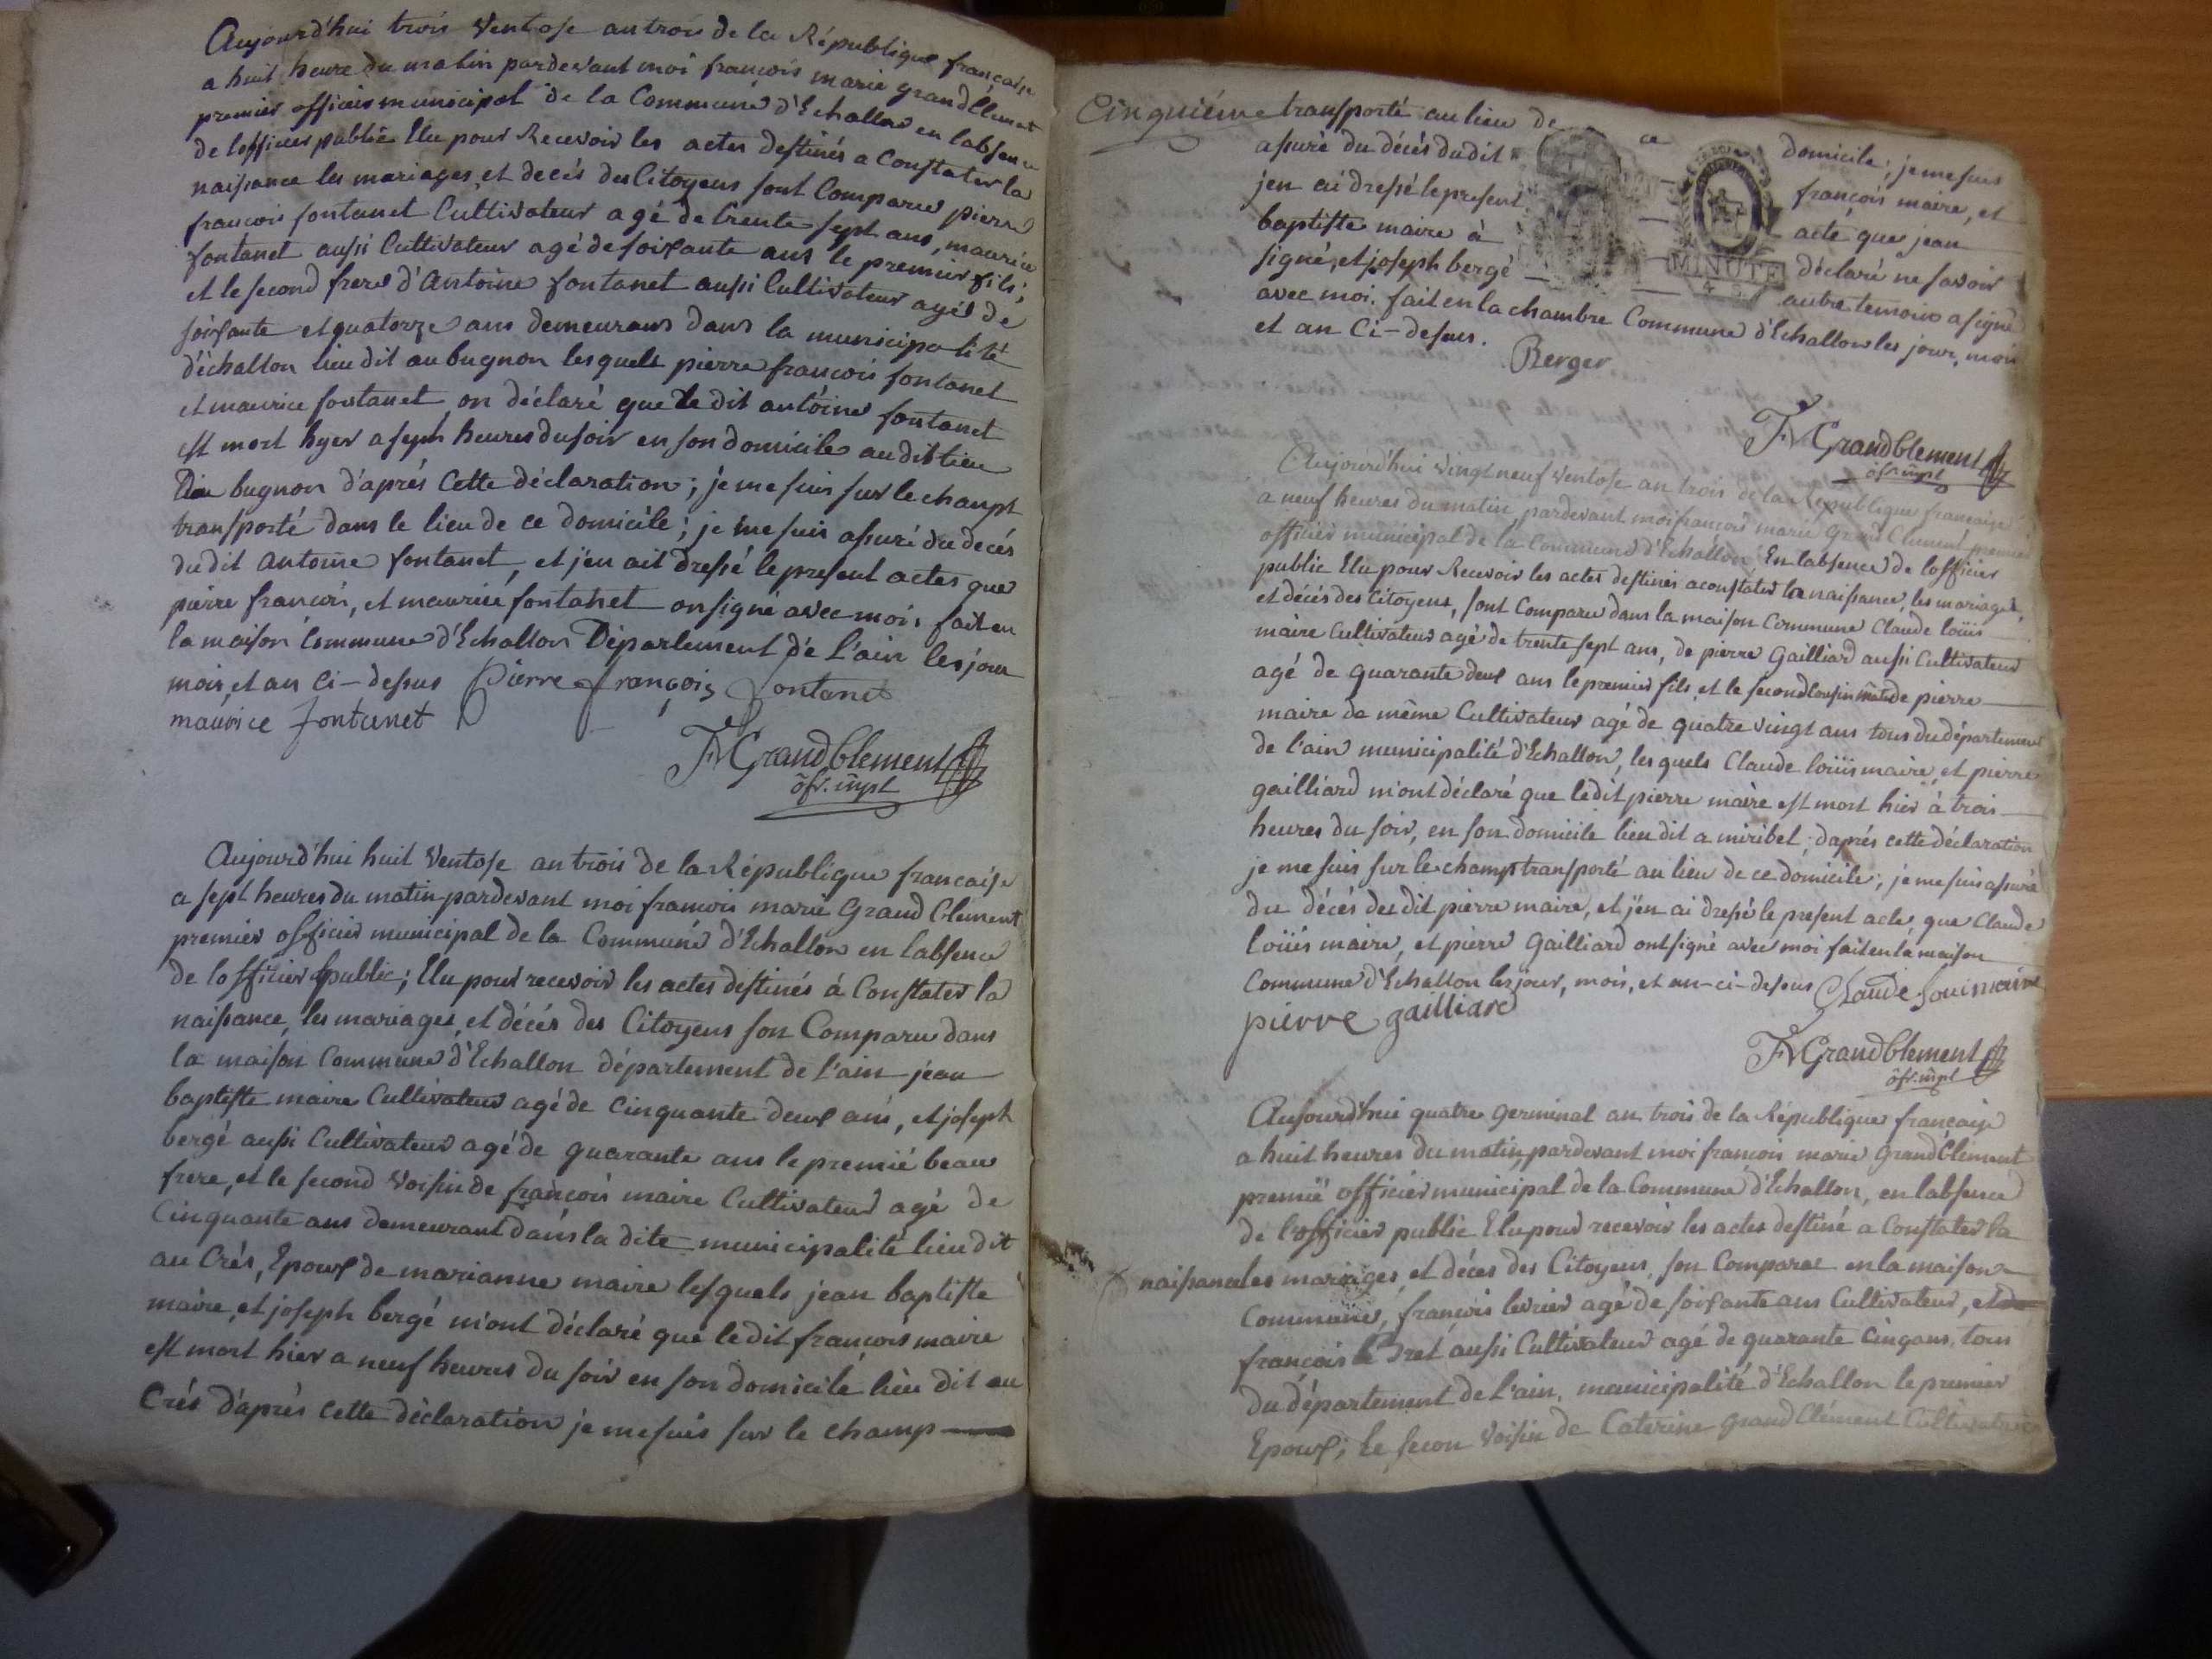 Aujourd'hui trois Ventose an trois de la République francaise
a huit heure du matin pardevant moi francois marie grand Clement
premier officier municipal de la Commune d'Echallon en labsence
de lofficier public Elu pour Recevoir les actes destinés a Constater la
naissance les mariages, et decés des Citoyens sont Comparus pierre
francois fontanet Cultivateur agé de trente sept ans, maurice
fontanet aussi Cultivateur agé de soixante ans le premier fils;
et le second frere d'Antoine fontanet aussi Cultivateur agé de
soixante et quatorze ans demeurans dans la municipalité
d'échallon lieu dit au bugnon lesquels pierre francois fontanet
et maurice fontanet on déclaré que le dit antoine fontanet
est mort hyer a sept heures du soir en son domicile audit lieu
Du bugnon d'aprés Cette déclaration; je me suis sur le champt
transporté dans le lieu de ce domicile; je me suis assuré du decés
dudit antoine fontanet, et j'en ait dressé le present actes que
pierre francois, et maurice fontanet on signé avec moi, fait en
la maison Commune d'Echallon Département de L'ain les jour
mois, et an Ci-dessus Pierre François fontanet
maurice fontanet
FM Grandclement
ofr. mpl
Aujourd'hui huit Ventose an trois de la République francaise
a sept heures du matin pardevant moi francois marie Grand Clement
premier officier municipal de la Commune d'Echallon en labsence
de lofficier public; Elu pour recevoir les actes destinés à Constater la
naissance, les mariages, et décés des Citoyens son Comparu dans
la maison Commune d'Echallon département de L'ain jean
baptiste maire Cultivateur agé de Cinquante deux ans, et joseph
bergé aussi Cultivateur agé de quarante ans le premié beau
frere, et le second Voisin de françois maire Cultivateur agé de
Cinquante ans demeurant dans la dite municipalité lieu dit
au Crés, Epoux de marianne maire lesquels jean baptiste
maire, et joseph bergé m'ont déclaré que ledit francois maire
est mort hier a neuf heures du soir en son domicile lieu dit au
Crés d'aprés cette déclaration je me suis sur le champ
Cinquiéme transporté au lieu de ce domicile; je me suis
assuré du décés dudit françois maire, et
jen ai dressé le present acte que jean
baptiste maire à déclaré ne savoir
signé, et joseph bergé autre temoin a signé
MINUTE
avec moi. fait en la chambre Commune d'Echallon les jour, mois
et an Ci-dessus.
Berger
FM Grandclement
ofr. mpl
Aujourd'hui Vingt neuf Ventose an trois de la République francaise
a neuf heures du matin, pardevant moi francois marie Grand Clement premier
officier municipal de la Commune d'Echallon En labsence de lofficier
public Elu pour Recevoir les actes destinés a constater la naissance, les mariages,
et décés des Citoyens, sont Comparu dans la maison Commune Claude loüis
maire Cultivateur agé de trente sept ans, de pierre Gailliard aussi Cultivateur
agé de quarante deux ans le premier fils, et le second Cousin de pierre
maire de même Cultivateur agé de quatre vingt ans tous du département
de l'ain municipalité d'Echallon, lesquels Claude loüis maire, et pierre
gailliard m'ont déclaré que ledit pierre maire est mort hier à trois
heures du soir, en son domicile lieu dit a miribel, d'aprés cette déclaration
je me suis sur le champ transporté au lieu de ce domicile; je me suis assuré
du décés du dit pierre maire, et j'en ai dressé le present acte, que Claude
loüis maire, et pierre Gailliard ont signé avec moi fait en la maison
Commune d'Echallon les jour, mois, et an-ci-dessus Claude Loui maire
pierre gailliard
FM Grandclement
ofr. mpl
Aujourd'hui quatre Germinal an trois de la République francaise
a huit heures du matin, pardevant moi francois marie Grand Clement
premié officier municipal de la Commune d'Echallon, en labsence
de lofficier public Elu pour recevoir les actes destiné a Constater la
naissance les mariages, et déces des Citoyens, son Comparus en la maison
Commune, francois levrier agé de soixante ans Cultivateur, et
françois aussi Cultivateur agé de quarante cinq ans, tous
du département de L'ain, municipalité d'Echallon le premier
Epoux; le secon Voisin de Caterine grand Clément Cultivatrice